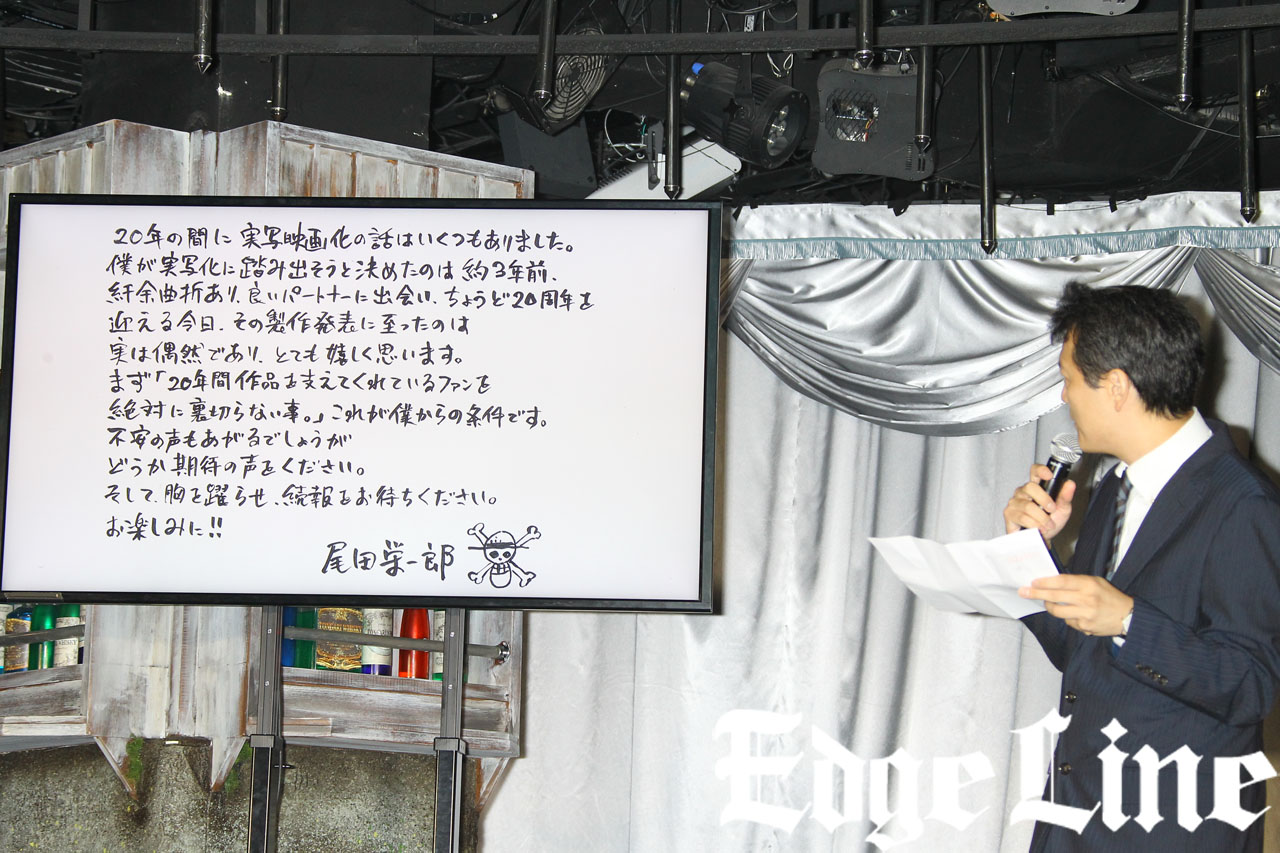 20年の間に実写映画化の話はいくつもありました。
僕が実写化に踏み出そうと決めたのは約3年前、
紆余曲折あり、良いパートナーに出会い、ちょうど20周年を
迎える今日、その製作発表に至ったのは
実は偶然であり、とても嬉しく思います。
まず「20年間作品を支えてくれているファンを
絶対に裏切らない事。」これが僕からの条件です。
不安の声もあがるでしょうが
どうか期待の声をください。
そして、胸を躍らせ、続報をお待ちください。
お楽しみに!!
尾田栄一郎
Edge Line